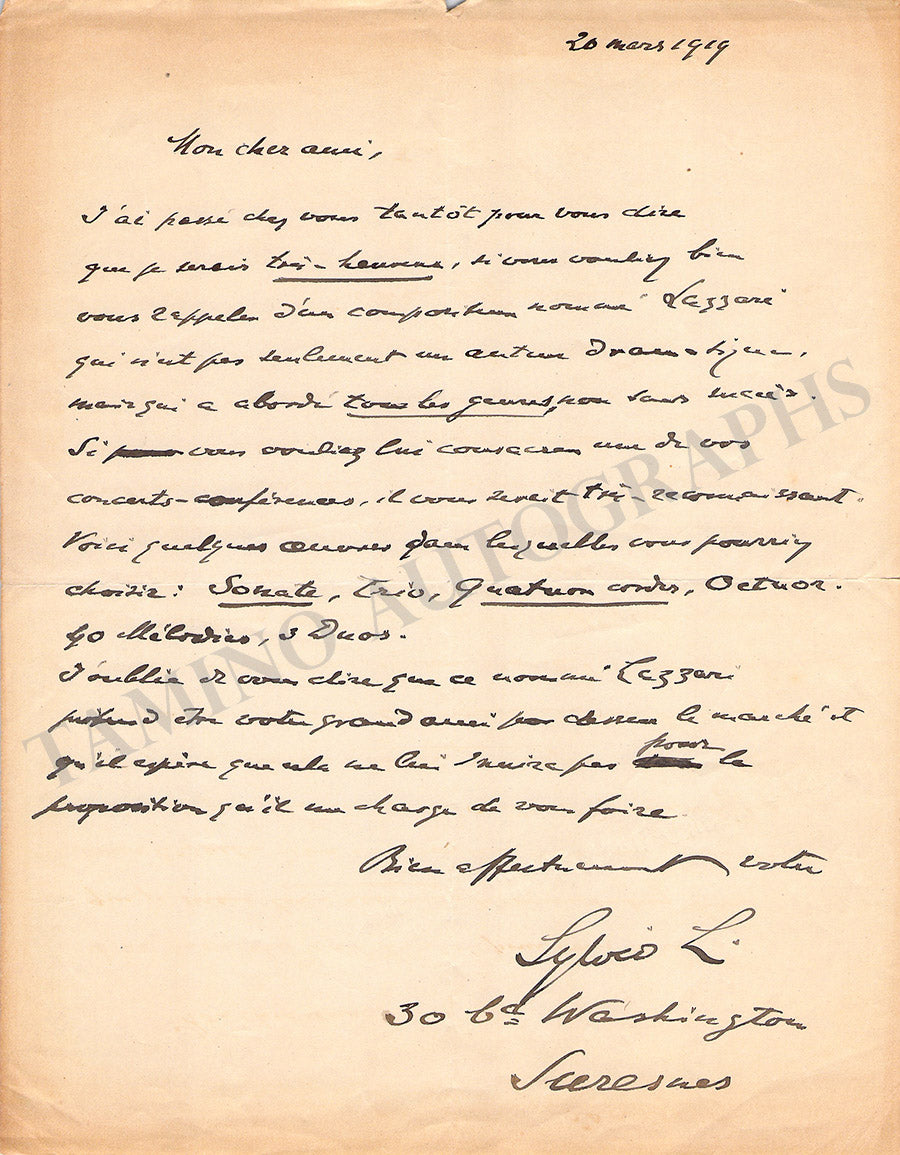 20 mars 1919
Mon cher ami,
J'ai passé chez vous tantôt pour vous dire
que je serais très-heureux, si vous vouliez bien
vous rappeler d'un compositeur nommé Lazzari
qui n'est pas seulement un auteur dramatique,
mais qui a abordé tous les genres, non sans succès.
Si vous vouliez lui consacrer une de vos
concerts-conférences, il vous serait très-reconnaissant.
Voici quelques œuvres dans lesquelles vous pourriez
choisir: Sonate, Trio, Quatuor cordes, Octuor.
40 Mélodies, 3 Duos.
J'oublie de vous dire que ce nommé Lazzari
prétend être votre grand ami par dessus le marché et
qu'il espère que cela ne lui nuira pas pour la
proposition qu'il me charge de vous faire
Bien affectueusement votre
Sylvio L.
30 bd Washington
Suresnes
TAMINO AUTOGRAPHS